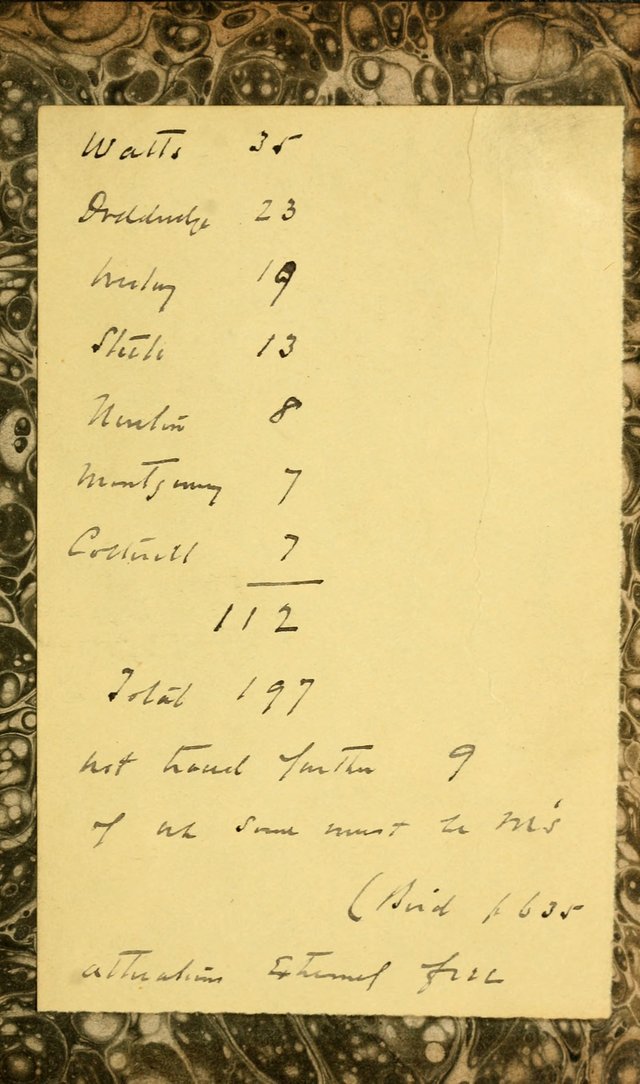 Watts 35
Doddridge 23
Wesley 19
Steele 13
Newton 8
Montgomery 7
Cotterill 7
112
Total 197
not traced further 9
of wh some must be M's
(Bird p 635
alterations Extremely free